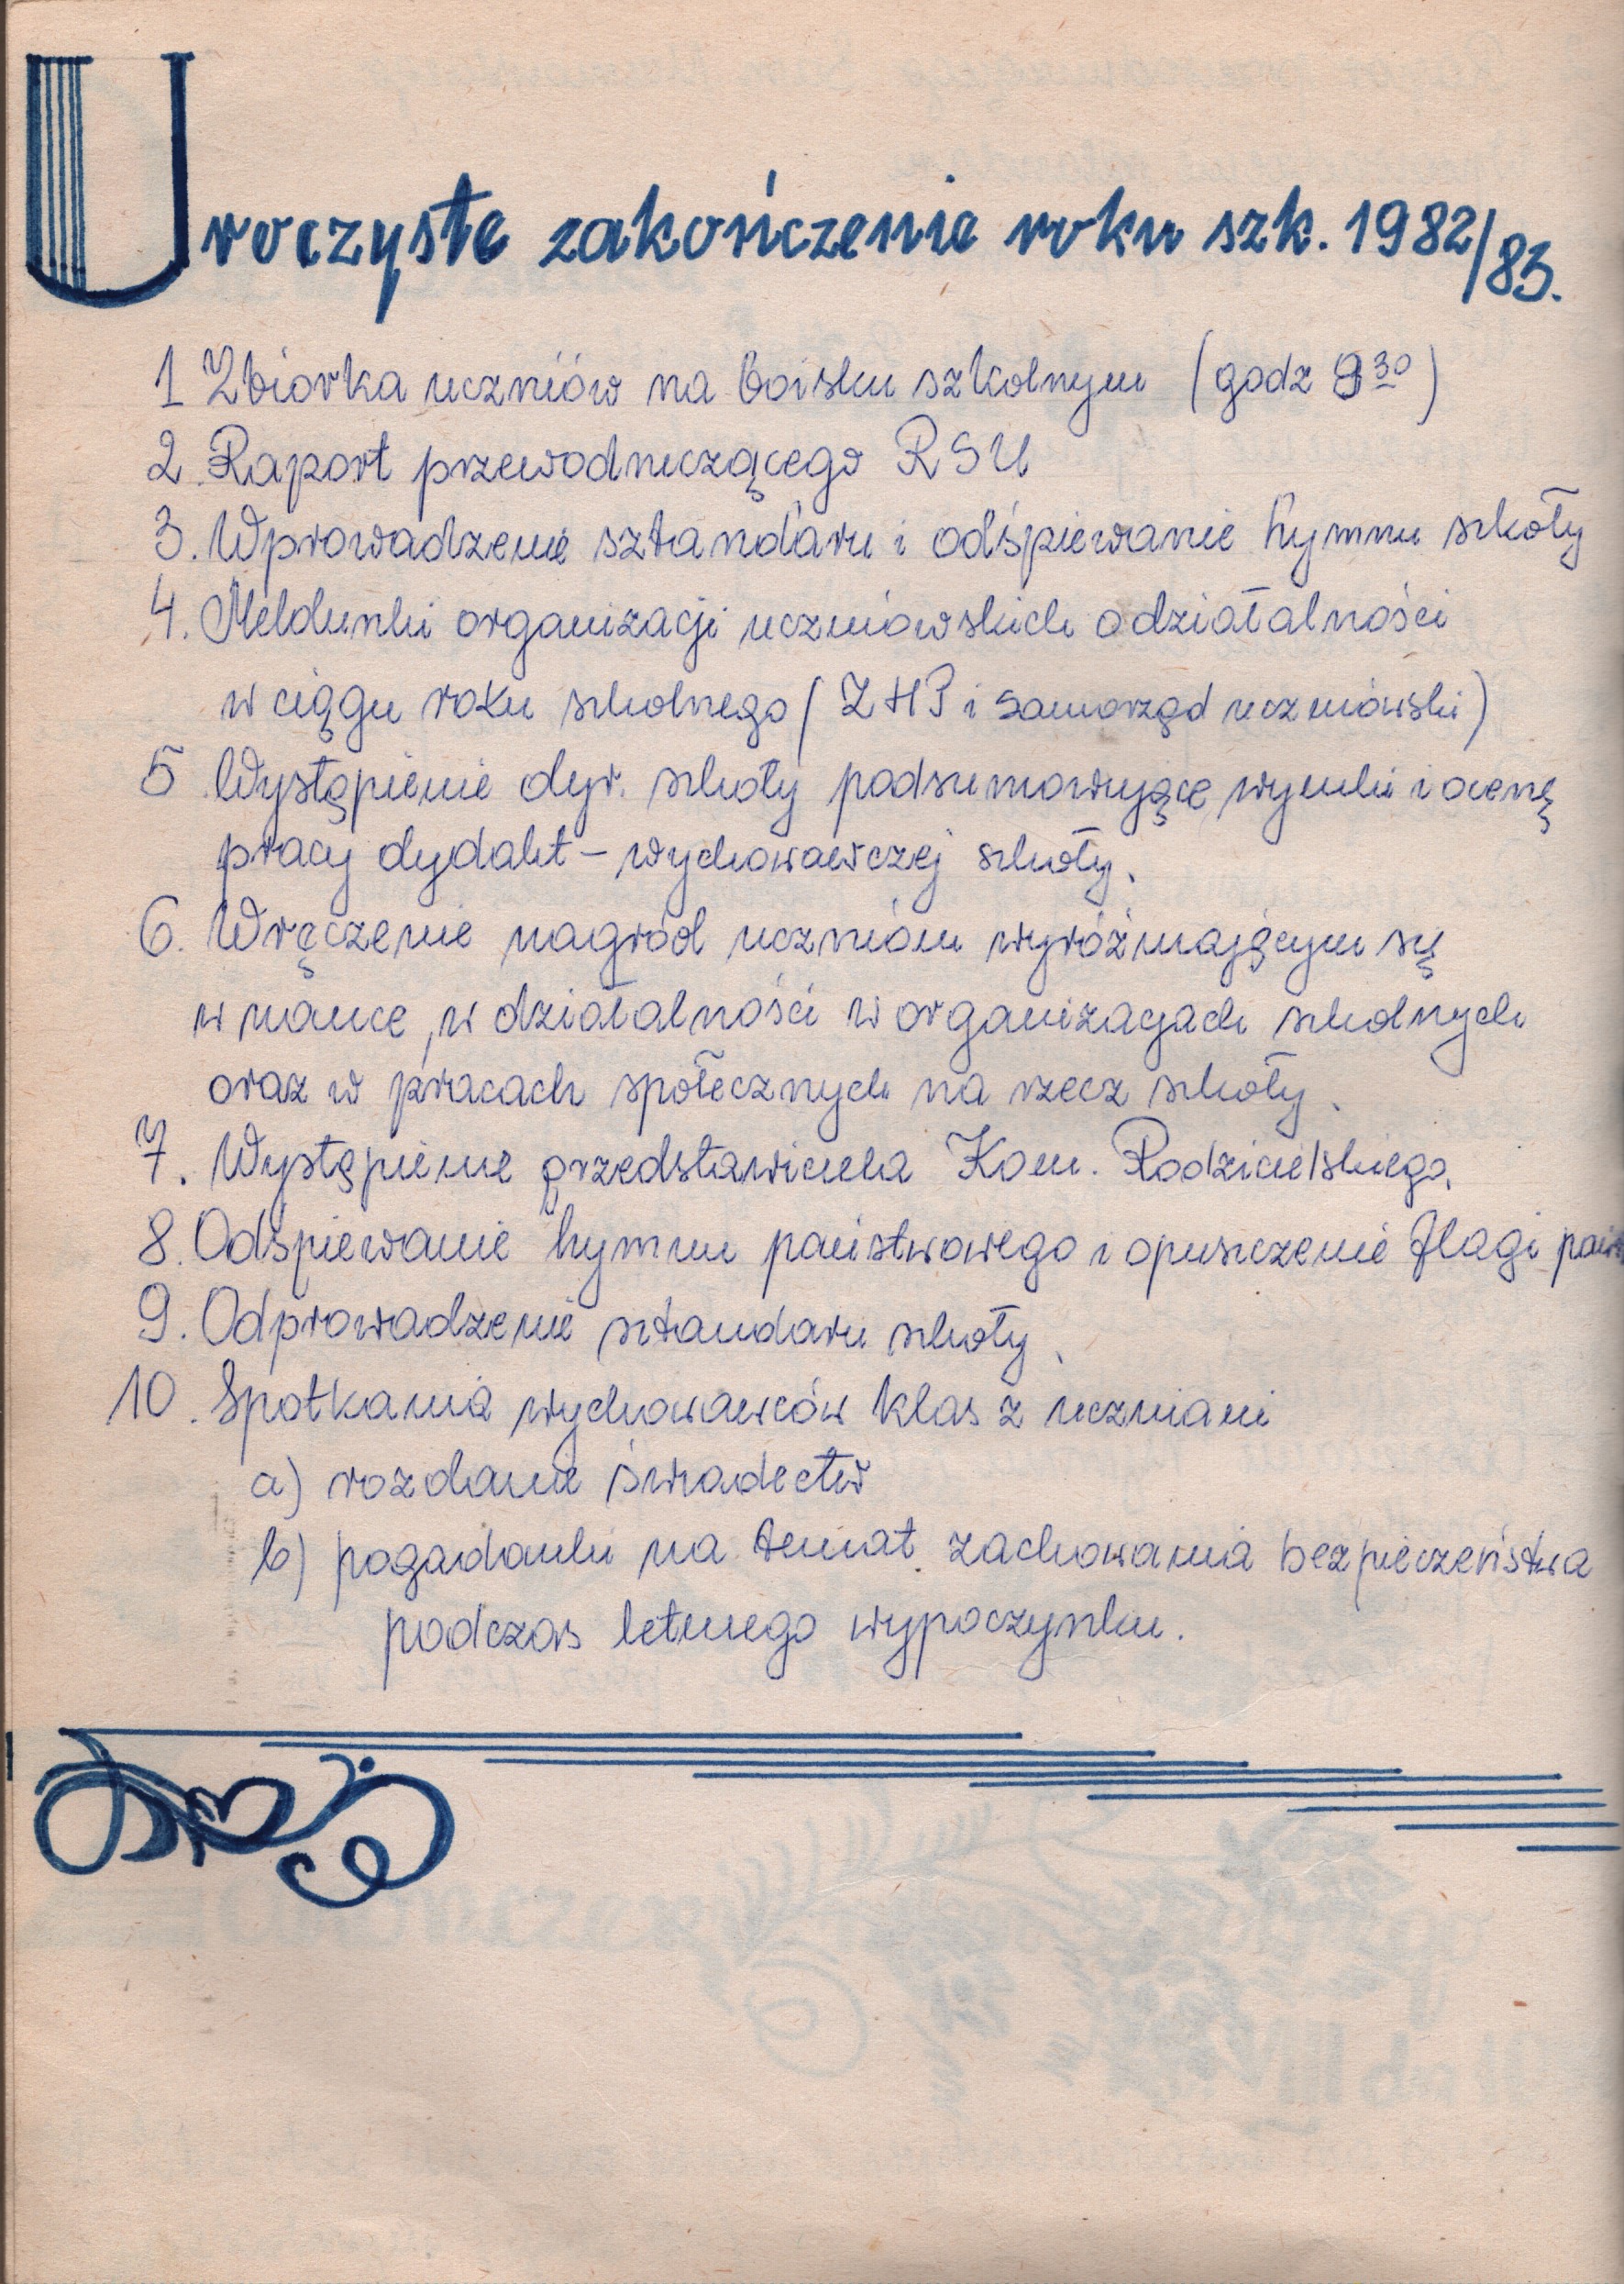 Uroczyste zakończenie roku szk. 1982/83.
1 Zbiórka uczniów na boisku szkolnym (godz 9 30)
2. Raport przewodniczącego RSU
3. Wprowadzenie sztandaru i odśpiewanie hymnu szkoły
4. Meldunki organizacji uczniowskich o działalności
w ciągu roku szkolnego (ZHP i Samorząd uczniowski)
5. Wystąpienie dyr. szkoły podsumowujące wyniki i ocenę
pracy dydakt – wychowawczej szkoły.
6. Wręczenie nagród uczniom wyróżniającym się
w nauce, w działalności w organizacjach szkolnych
oraz w pracach społecznych na rzecz szkoły.
7. Wystąpienie przedstawiciela Kom. Rodzicielskiego.
8. Odśpiewanie hymnu państwowego i opuszczenie flagi pańs
9. Odprowadzenie sztandaru szkoły.
10. Spotkania wychowawców klas z uczniami
a) rozdanie świadectw
b) pogadanki na temat zachowania bezpieczeństwa
podczas letniego wypoczynku.